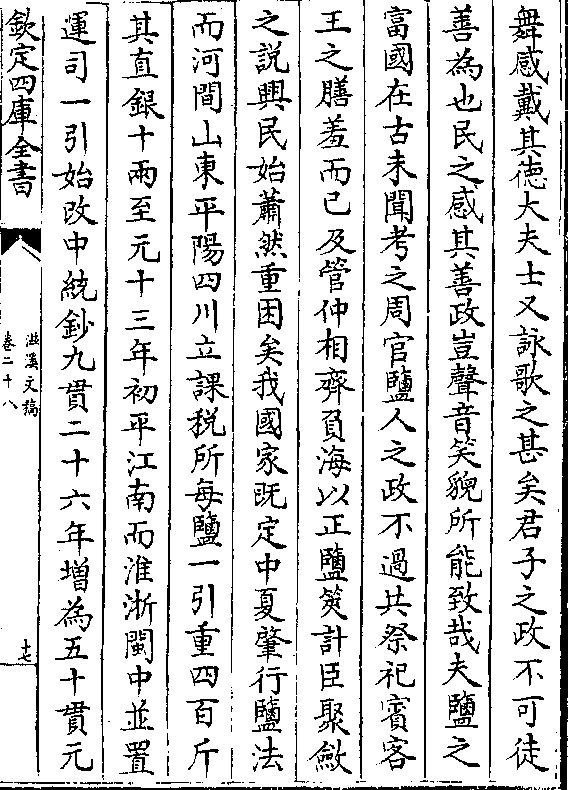 舞感戴其徳大夫士又詠歌之甚矣君子之政不可徒
善為也民之感其善政豈聲音笑貌所能致哉夫鹽之
富國在古未聞考之周官鹽人之政不過共祭祀賓客
王之膳羞而已及管仲相齊負海以正鹽筴計臣聚斂
之説興民始蕭然重困矣我國家既定中夏肇行鹽法
而河間山東平陽四川立課税所每鹽一引重四百斤
其直銀十兩至元十三年初平江南而淮浙閩中並置
運司一引始改中統鈔九貫二十六年増為五十貫元
欽定四庫全書
滋溪文稿
卷二十八
十七